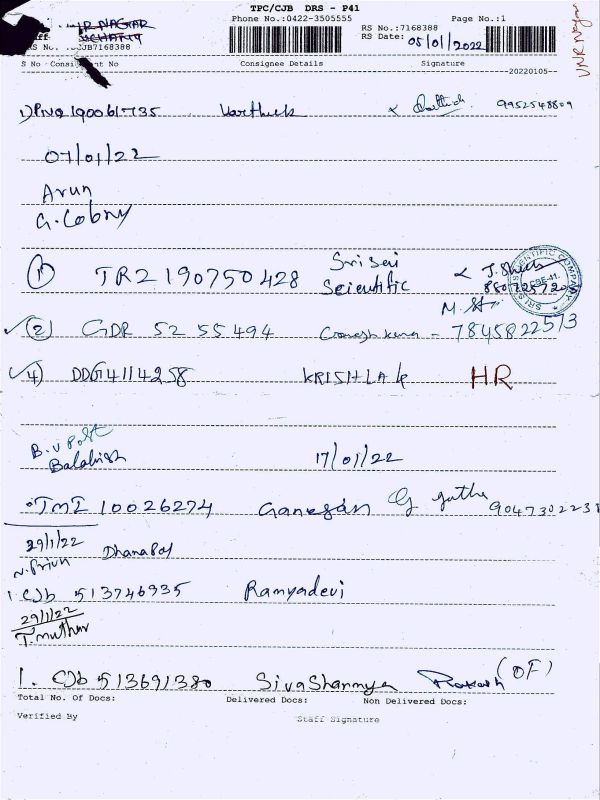 TPC/CJB DRS - P41
Phone No.:0422-3505555 Page No.:1
RS No.:7168388
RS No. :CJB7168388
RS Date: 05/01/2022
S No Consignment No Consignee Details Signature
20220105
1) PNQ190061735 Karthick x Karthick 9952548809
07/01/22
Arun
G. Colony
1) TRZ 190750428 Sri Sai Scientific
M. St
✓(2) GDR 5255494 Ganesh kumar - 7845822513
✓4) DDG4114258 KRISHLA HR
B.V Post
Balakish 17/01/22
TMI 10026274 Ganesan
29/1/22
Dhanapal
1. CJb 513746935 Ramyadevi
29/1/22
T. muthu
1. CJb 513691380 SivaSharmya Prakash (OF)
Total No. Of Docs: Delivered Docs: Non Delivered Docs:
Verified By Staff Signature